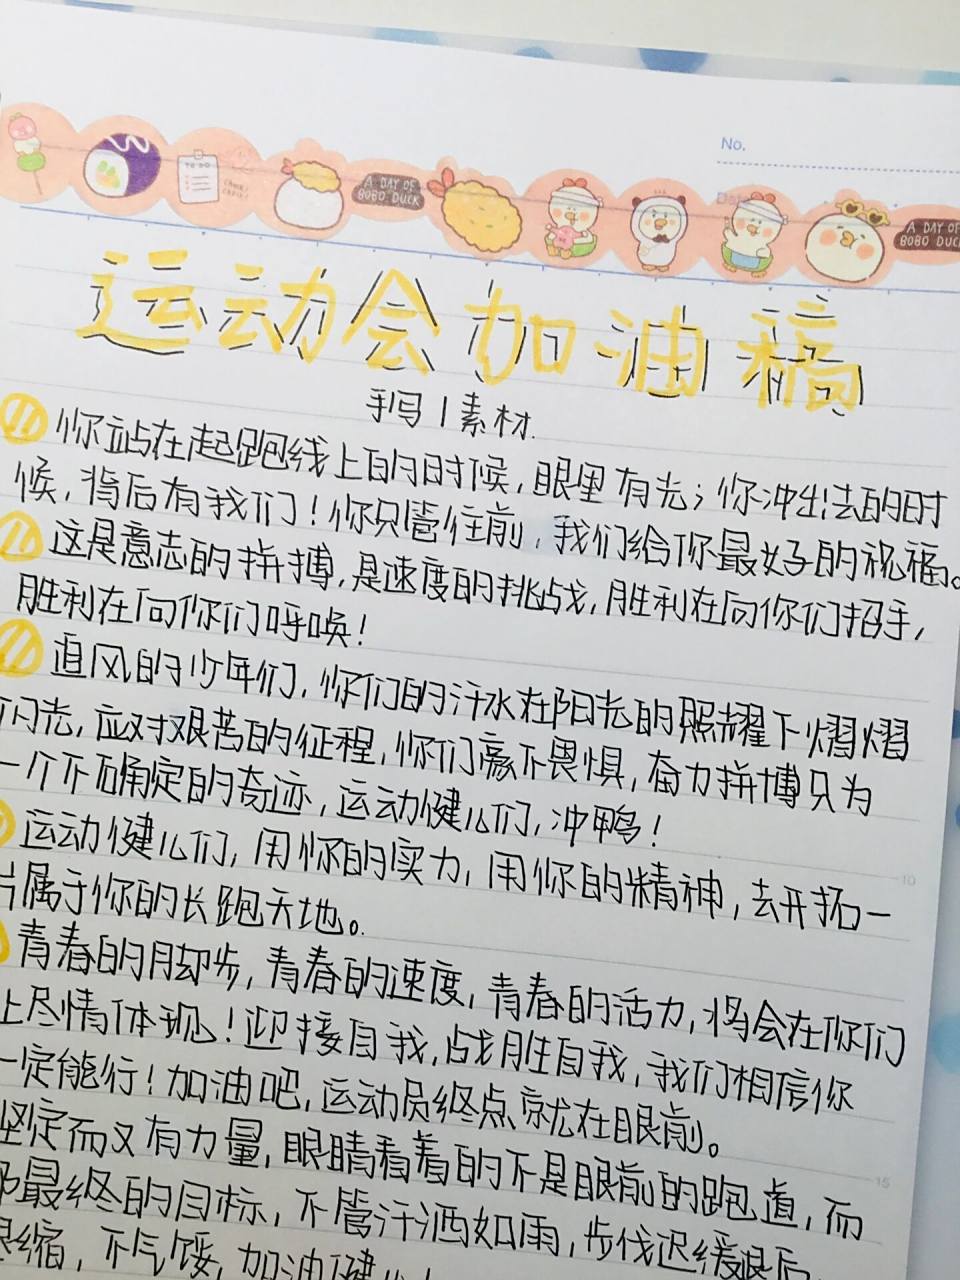 No.
TO DO
A DAY OF
BOBO DUCK
A DAY OF
BOBO DUCK
运动会加油稿
手写|素材.
你站在起跑线上的时候,眼里有光;你冲出去的时
候,背后有我们!你只管往前,我们给你最好的祝福。
这是意志的拼搏,是速度的挑战,胜利在向你们招手,
胜利在向你们呼唤!
追风的少年们,你们的汗水在阳光的照耀下熠熠
闪光,应对艰苦的征程,你们毫不畏惧,奋力拼博只为
一个不确定的奇迹,运动健儿们,冲鸭!
运动健儿们,用你的实力,用你的精神,去开拓一
片属于你的长跑天地。
10
青春的脚步,青春的速度,青春的活力,将会在你们
上尽情体现!迎接自我,战胜自我,我们相信你
一定能行!加油吧,运动员终点就在眼前。
坚定而又有力量,眼睛看着的不是眼前的跑道,而
15
最终的目标,不管汗洒如雨,步伐迟缓,退后
缩,不气馁,加油健儿!